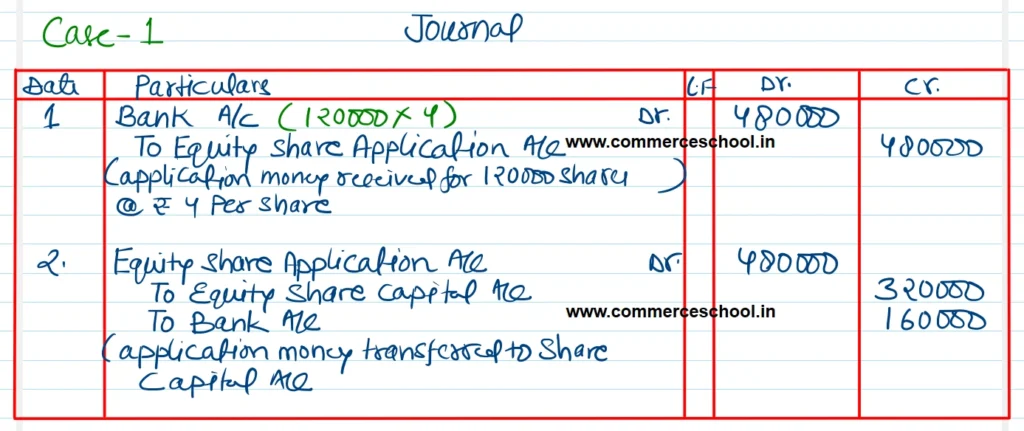 Case-1 Journal
Date Particulars L.F Dr. Cr.
1 Bank A/c (120000 x 4) Dr. 480000
To Equity share Application A/c www.commerceschool.in 480000
(application money received for 120000 shares)
@ ₹ 4 Per share
2. Equity share Application A/c Dr. 480000
To Equity Share Capital A/c 320000
To Bank A/c www.commerceschool.in 160000
(application money transferred to Share
Capital A/c